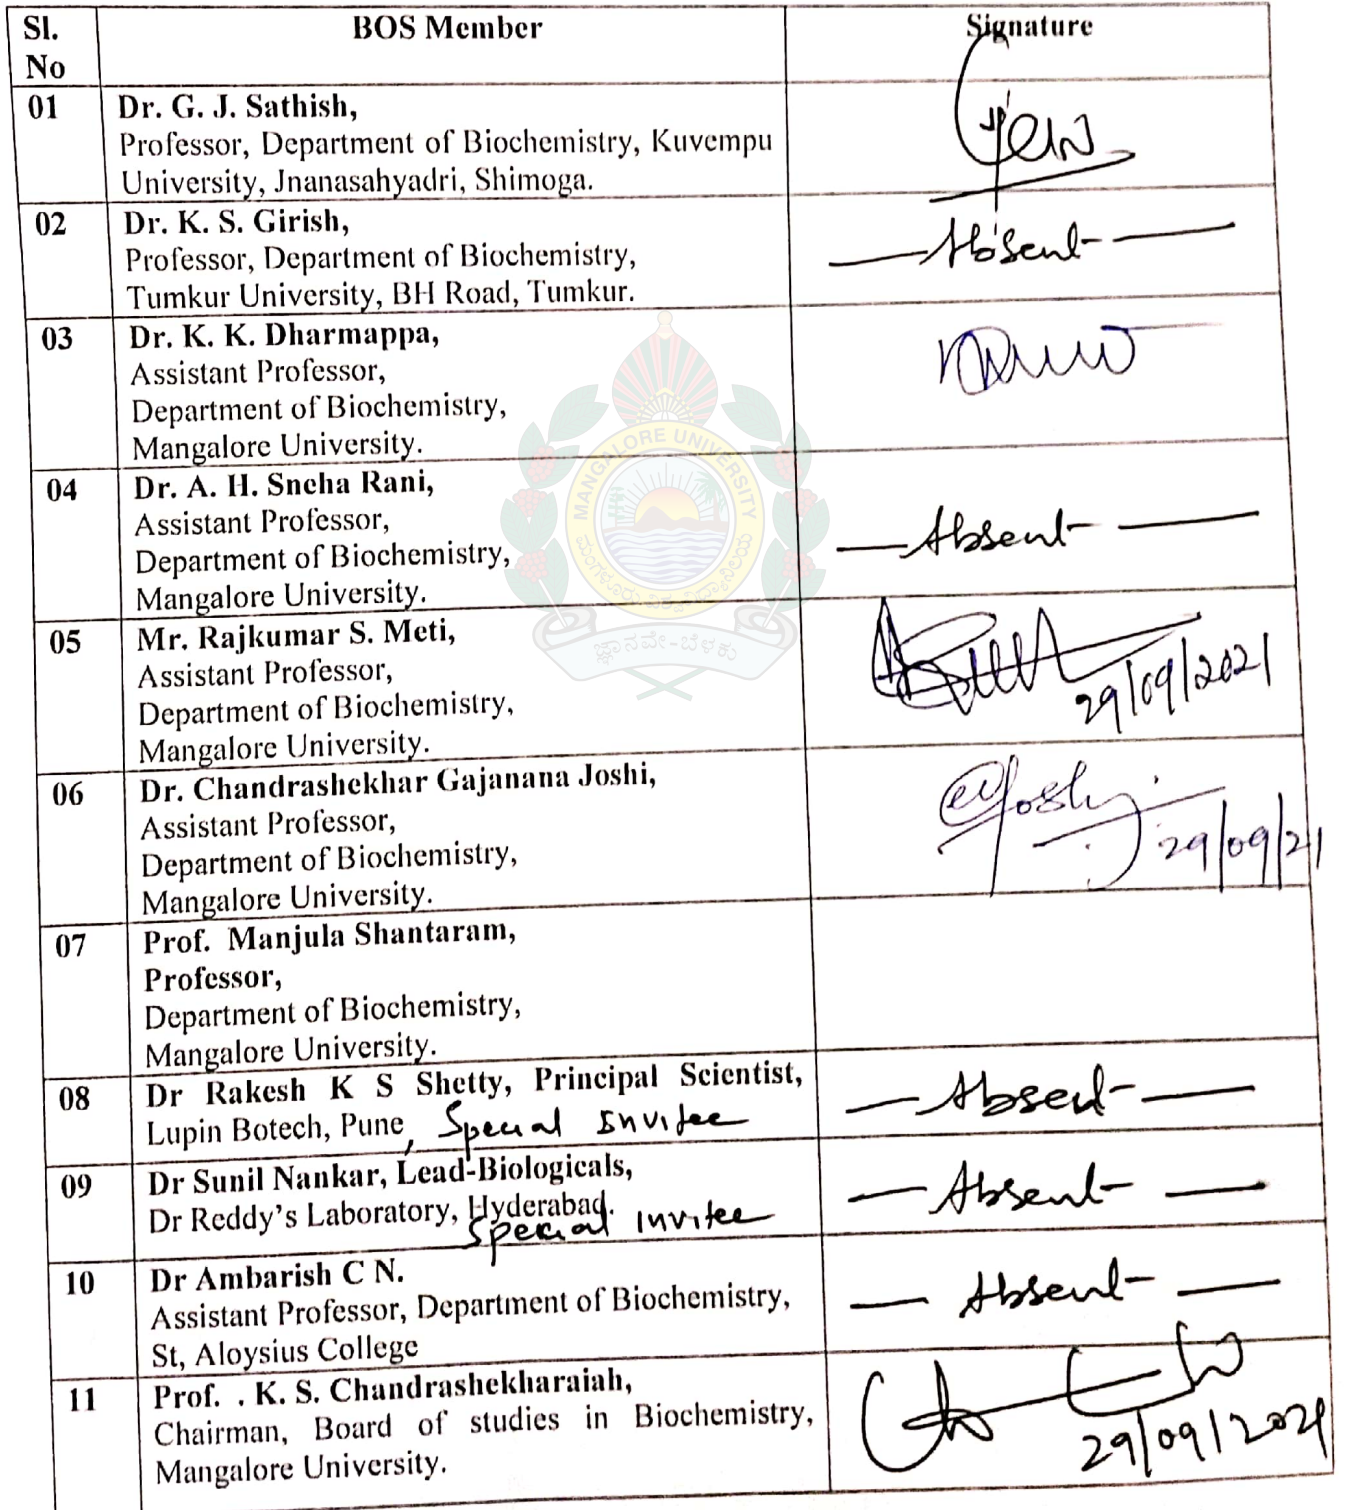 Sl. No BOS Member Signature
01 Dr. G. J. Sathish,
Professor, Department of Biochemistry, Kuvempu
University, Jnanasahyadri, Shimoga.
02 Dr. K. S. Girish, Absent
Professor, Department of Biochemistry,
Tumkur University, BH Road, Tumkur.
03 Dr. K. K. Dharmappa,
Assistant Professor,
Department of Biochemistry,
Mangalore University.
MANGALORE UNIVERSITY
ಮಂಗಳೂರು ವಿಶ್ವವಿದ್ಯಾನಿಲಯ
ಜ್ಞಾನವೇ-ಬೆಳಕು
04 Dr. A. H. Sneha Rani,
Assistant Professor, Absent
Department of Biochemistry,
Mangalore University.
05 Mr. Rajkumar S. Meti,
Assistant Professor,
Department of Biochemistry, 29/09/2021
Mangalore University.
06 Dr. Chandrashekhar Gajanana Joshi,
Assistant Professor,
Department of Biochemistry, 29/09/21
Mangalore University.
07 Prof. Manjula Shantaram,
Professor,
Department of Biochemistry,
Mangalore University.
08 Dr Rakesh K S Shetty, Principal Scientist, Absent
Lupin Botech, Pune, Special Invitee
09 Dr Sunil Nankar, Lead-Biologicals, Absent
Dr Reddy's Laboratory, Hyderabad.
Special Invitee
10 Dr Ambarish C N. Absent
Assistant Professor, Department of Biochemistry,
St, Aloysius College
11 Prof. . K. S. Chandrashekharaiah,
Chairman, Board of studies in Biochemistry, 29/09/2021
Mangalore University.